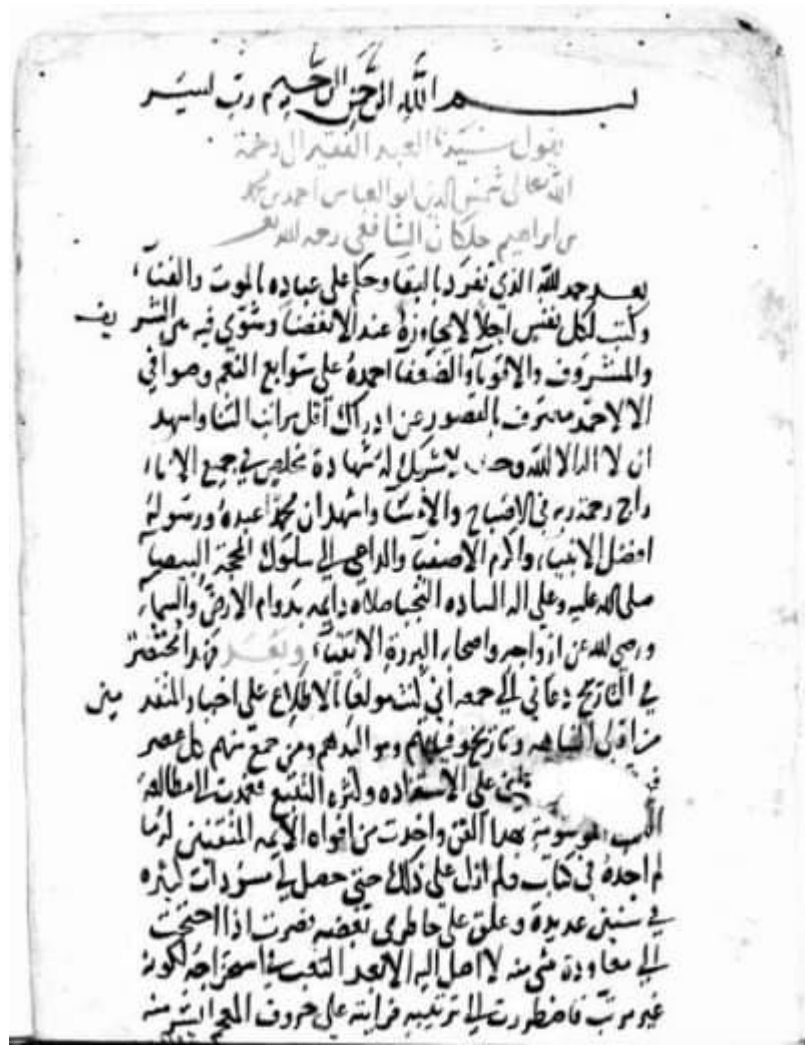 بسم الله الرحمن الرحيم رب يسر
يقول سيدنا العبد الفقير الى رحمة
الله تعالى شمس الدين ابو العباس احمد بن محمد
بن ابراهيم خلكان الشافعي رحمه الله
بعد حمد لله الذي تفرد بالبقا وحكم على عباده بالموت والفنا
وكتب لكل نفس اجلا لا يجاوزه عند الانقضا وسوى فيه بين الشريف
والمشروف والاقويا والضعفا احمده على سوابغ النعم وصوافي
الالا حمد معترف بالقصور عن ادراك اقل مراتب الثنا واشهد
ان لا اله الا الله وحده لا شريك له شهادة مخلص في جميع الانا
راج رحمة ربه في الاصباح والامسا واشهد ان محمدا عبده ورسوله
افضل الانبيا واكرم الاصفيا والداعي الى سلوك المحجة البيضا
صلى الله عليه وعلى اله الساده النجبا صلاة دايمه بدوام الارض والسما
ورضي لله عن ازواجه واصحابه البررة الاتقيا وبعد فهذا مختصر
في التاريخ دعاني الى جمعه اني كنت مولعا بالاطلاع على اخبار المتقدمين
من اولي النباهه وتاريخ وفياتهم ومواليدهم ومن جمع منهم كل عصر
على الاستزاده وكثرة التتبع فعمدت الى مطالعة
الكتب الموسومة بهذا الفن واخذت من افواه الايمه المتقنين له ما
لم اجده في كتاب ولم ازل على ذلك حتى حصل لي مسودات كثيره
في سنين عديدة وعلق على خاطري بعضه فصرت اذا احتجت
الى معاودة شي منه لا اصل اليه الا بعد التعب في استخراجه لكونه
غير مرتب فاضطررت الى ترتيبه فرايته على حروف المعجم ايسر منه